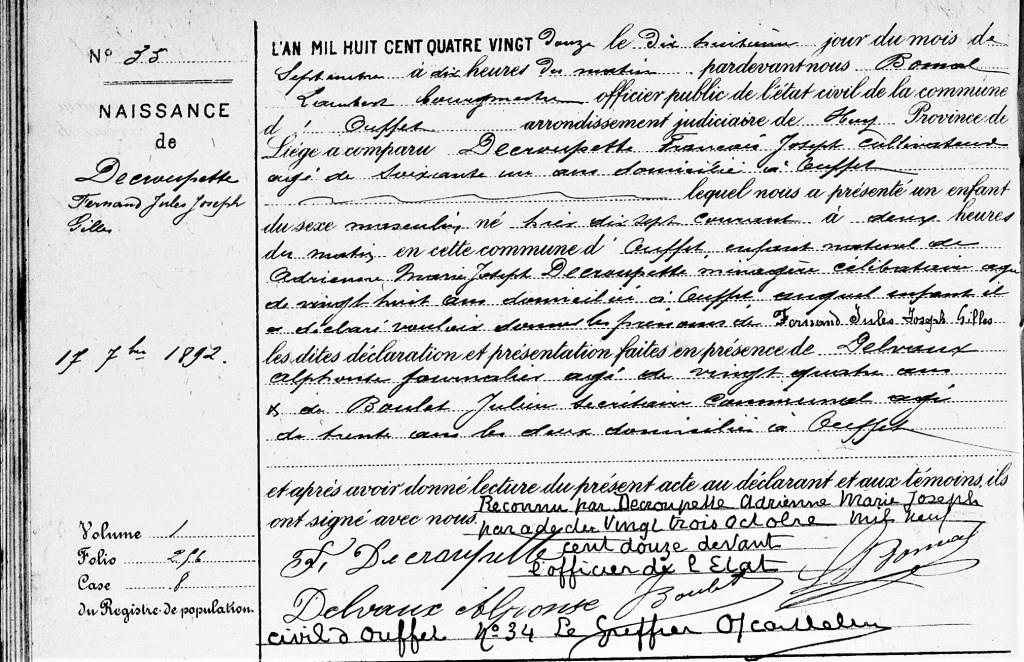 N° 35
NAISSANCE
de
Decroupette
Fernand Jules Joseph
Gilles
17 7bre 1892.
Volume 1
Folio 256
Case 8
du Registre de population.
L'AN MIL HUIT CENT QUATRE VINGT douze le dix huitième jour du mois de
Septembre à dix heures du matin pardevant nous Bomal
Lambert bourgmestre officier public de l'état civil de la commune
d'Ouffet arrondissement judiciaire de Huy Province de
Liège a comparu Decroupette François Joseph Cultivateur
agé de soixante un ans domicilié à Ouffet
lequel nous a présenté un enfant
du sexe masculin, né hier dix sept courant à deux heures
du matin en cette commune d'Ouffet, enfant naturel de
Adrienne Marie Joseph Decroupette ménagère célibataire agée
de vingt huit ans domiciliée à Ouffet auquel enfant il
a déclaré vouloir donner les prénoms de Fernand Jules Joseph Gilles
les dites déclaration et présentation faites en présence de Delvaux
Alphonse journalier agé de vingt quatre ans
& de Boulet Julien secrétaire communal agé
de trente ans les deux domiciliés à Ouffet
et après avoir donné lecture du présent acte au déclarant et aux témoins, ils
ont signé avec nous. Reconnu par Decroupette Adrienne Marie Joseph
par acte du Vingt trois octobre mil neuf
cent douze devant
l'officier de l'Etat
F. Decroupette
L Bomal
Delvaux Alfonse
Boulet
civil d'Ouffet N° 34 Le Greffier